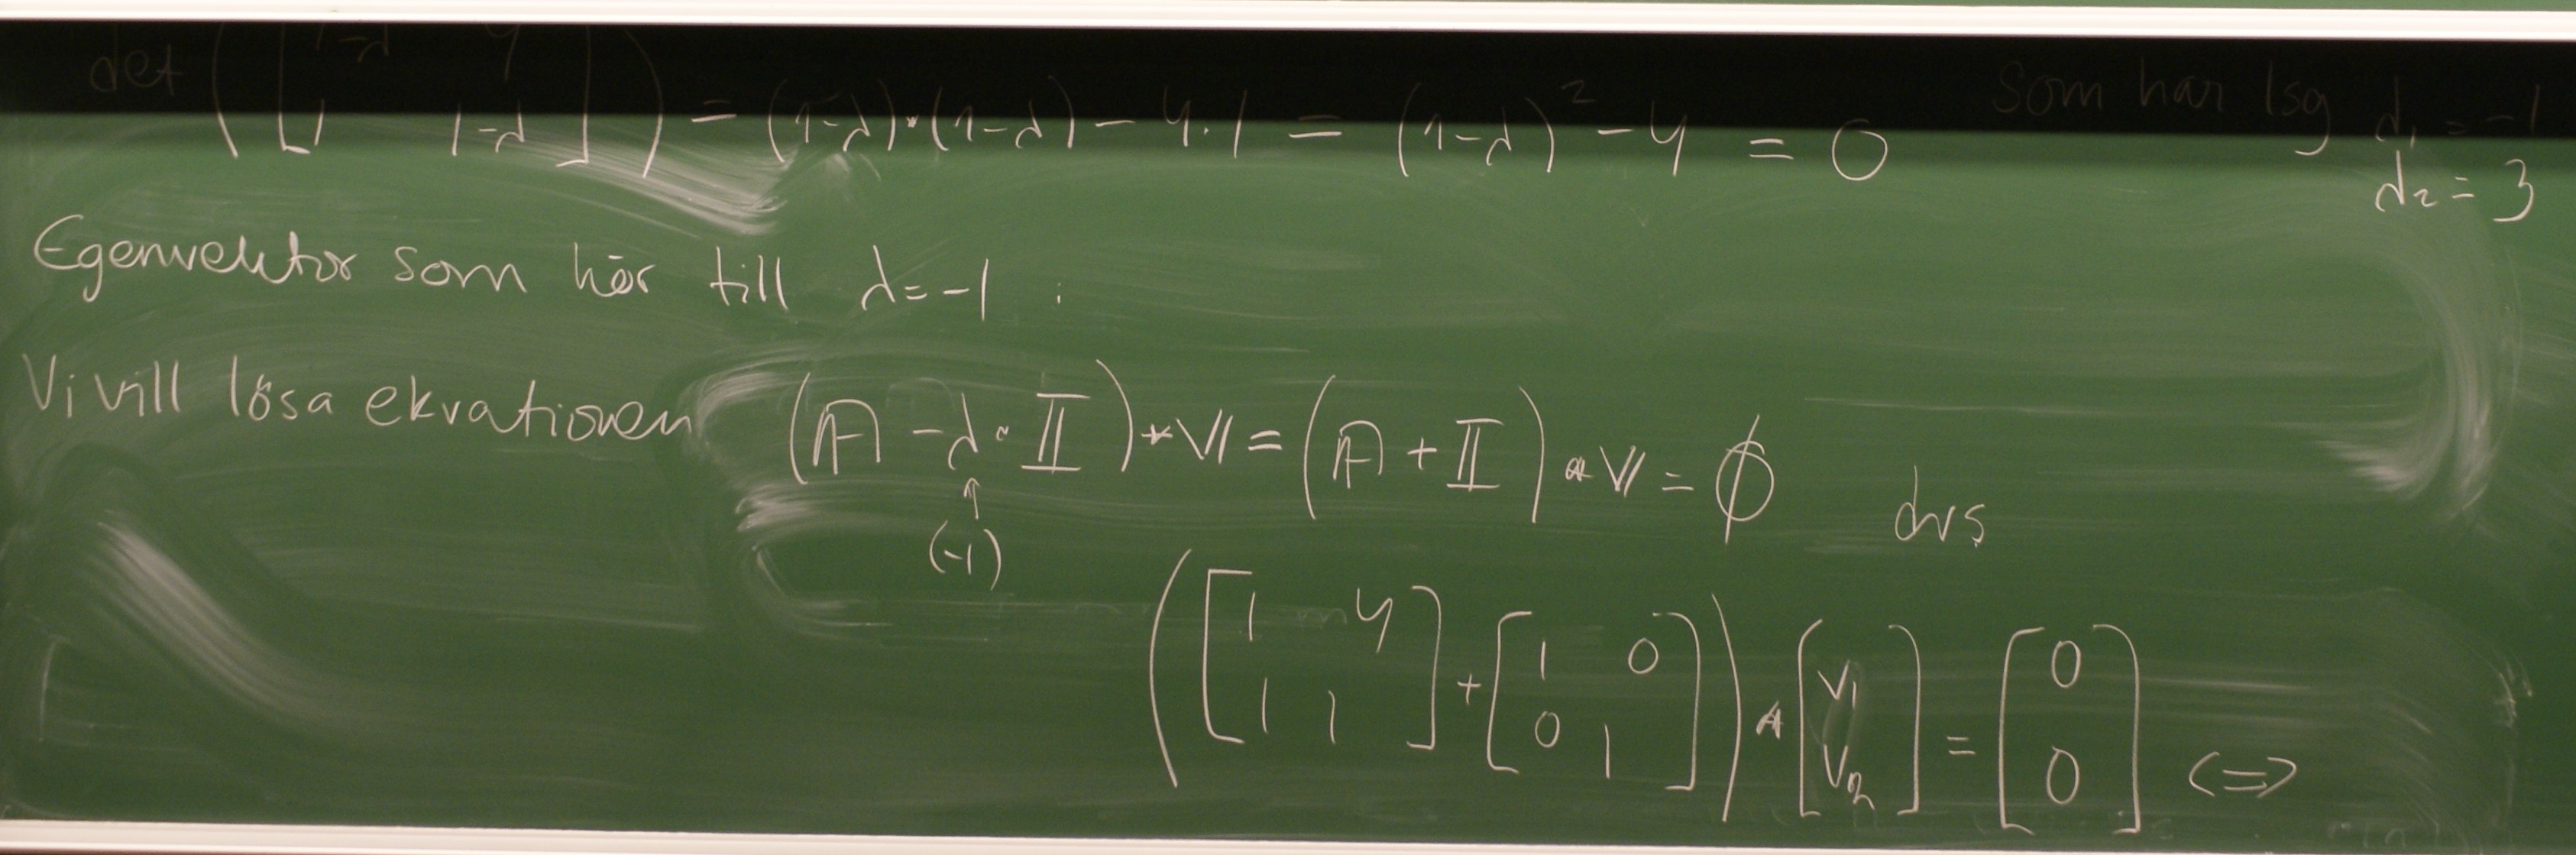 det ( [ 1-λ 4 1 1-λ ] ) = (1-λ)·(1-λ) - 4·1 = (1-λ)² - 4 = 0 Som har lsg λ₁ = -1
λ₂ = 3
Egenvektor som hör till λ=-1 :
Vi vill lösa ekvationen (A - λ · I) * V = (A + I) * V = 0 dvs
↑
(-1)
( [ 1 4 1 1 ] + [ 1 0 0 1 ] ) * [ V₁ V₂ ] = [ 0 0 ] <=>